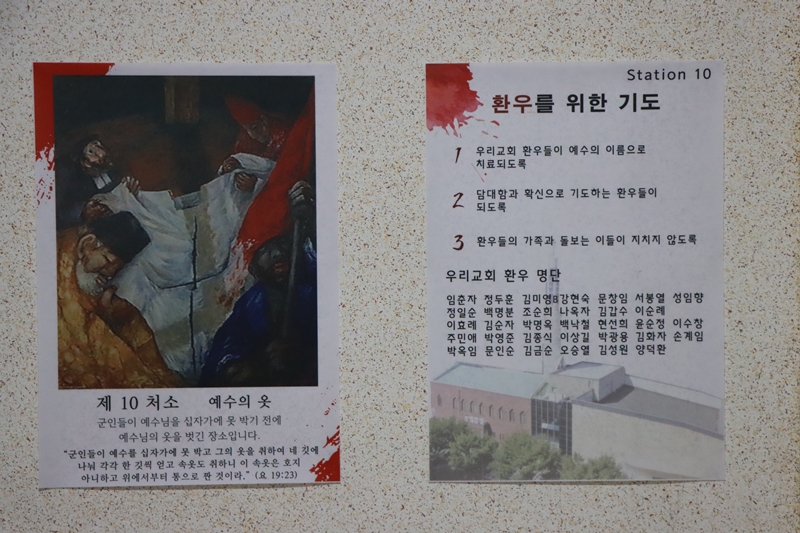 제 10 처소 예수의 옷
군인들이 예수님을 십자가에 못 박기 전에
예수님의 옷을 벗긴 장소입니다.
“군인들이 예수를 십자가에 못 박고 그의 옷을 취하여 네 깃에
나눠 각각 한 깃씩 얻고 속옷도 취하니 이 속옷은 호지
아니하고 위에서부터 통으로 짠 것이라.” (요 19:23)
Station 10
환우를 위한 기도
1 우리교회 환우들이 예수의 이름으로
치료되도록
2 담대함과 확신으로 기도하는 환우들이
되도록
3 환우들의 가족과 돌보는 이들이 지치지 않도록
우리교회 환우 명단
임춘자 정두훈 김미영B강현숙 문창임 서봉열 성임향
정일순 백명분 조순희 나옥자 김갑수 이순례
이효례 김순자 박명옥 백낙철 현선희 윤순정 이수창
주민애 박영준 김종식 이상길 박광용 김화자 손계임
박옥임 문인순 김금순 오승열 김성원 양덕환